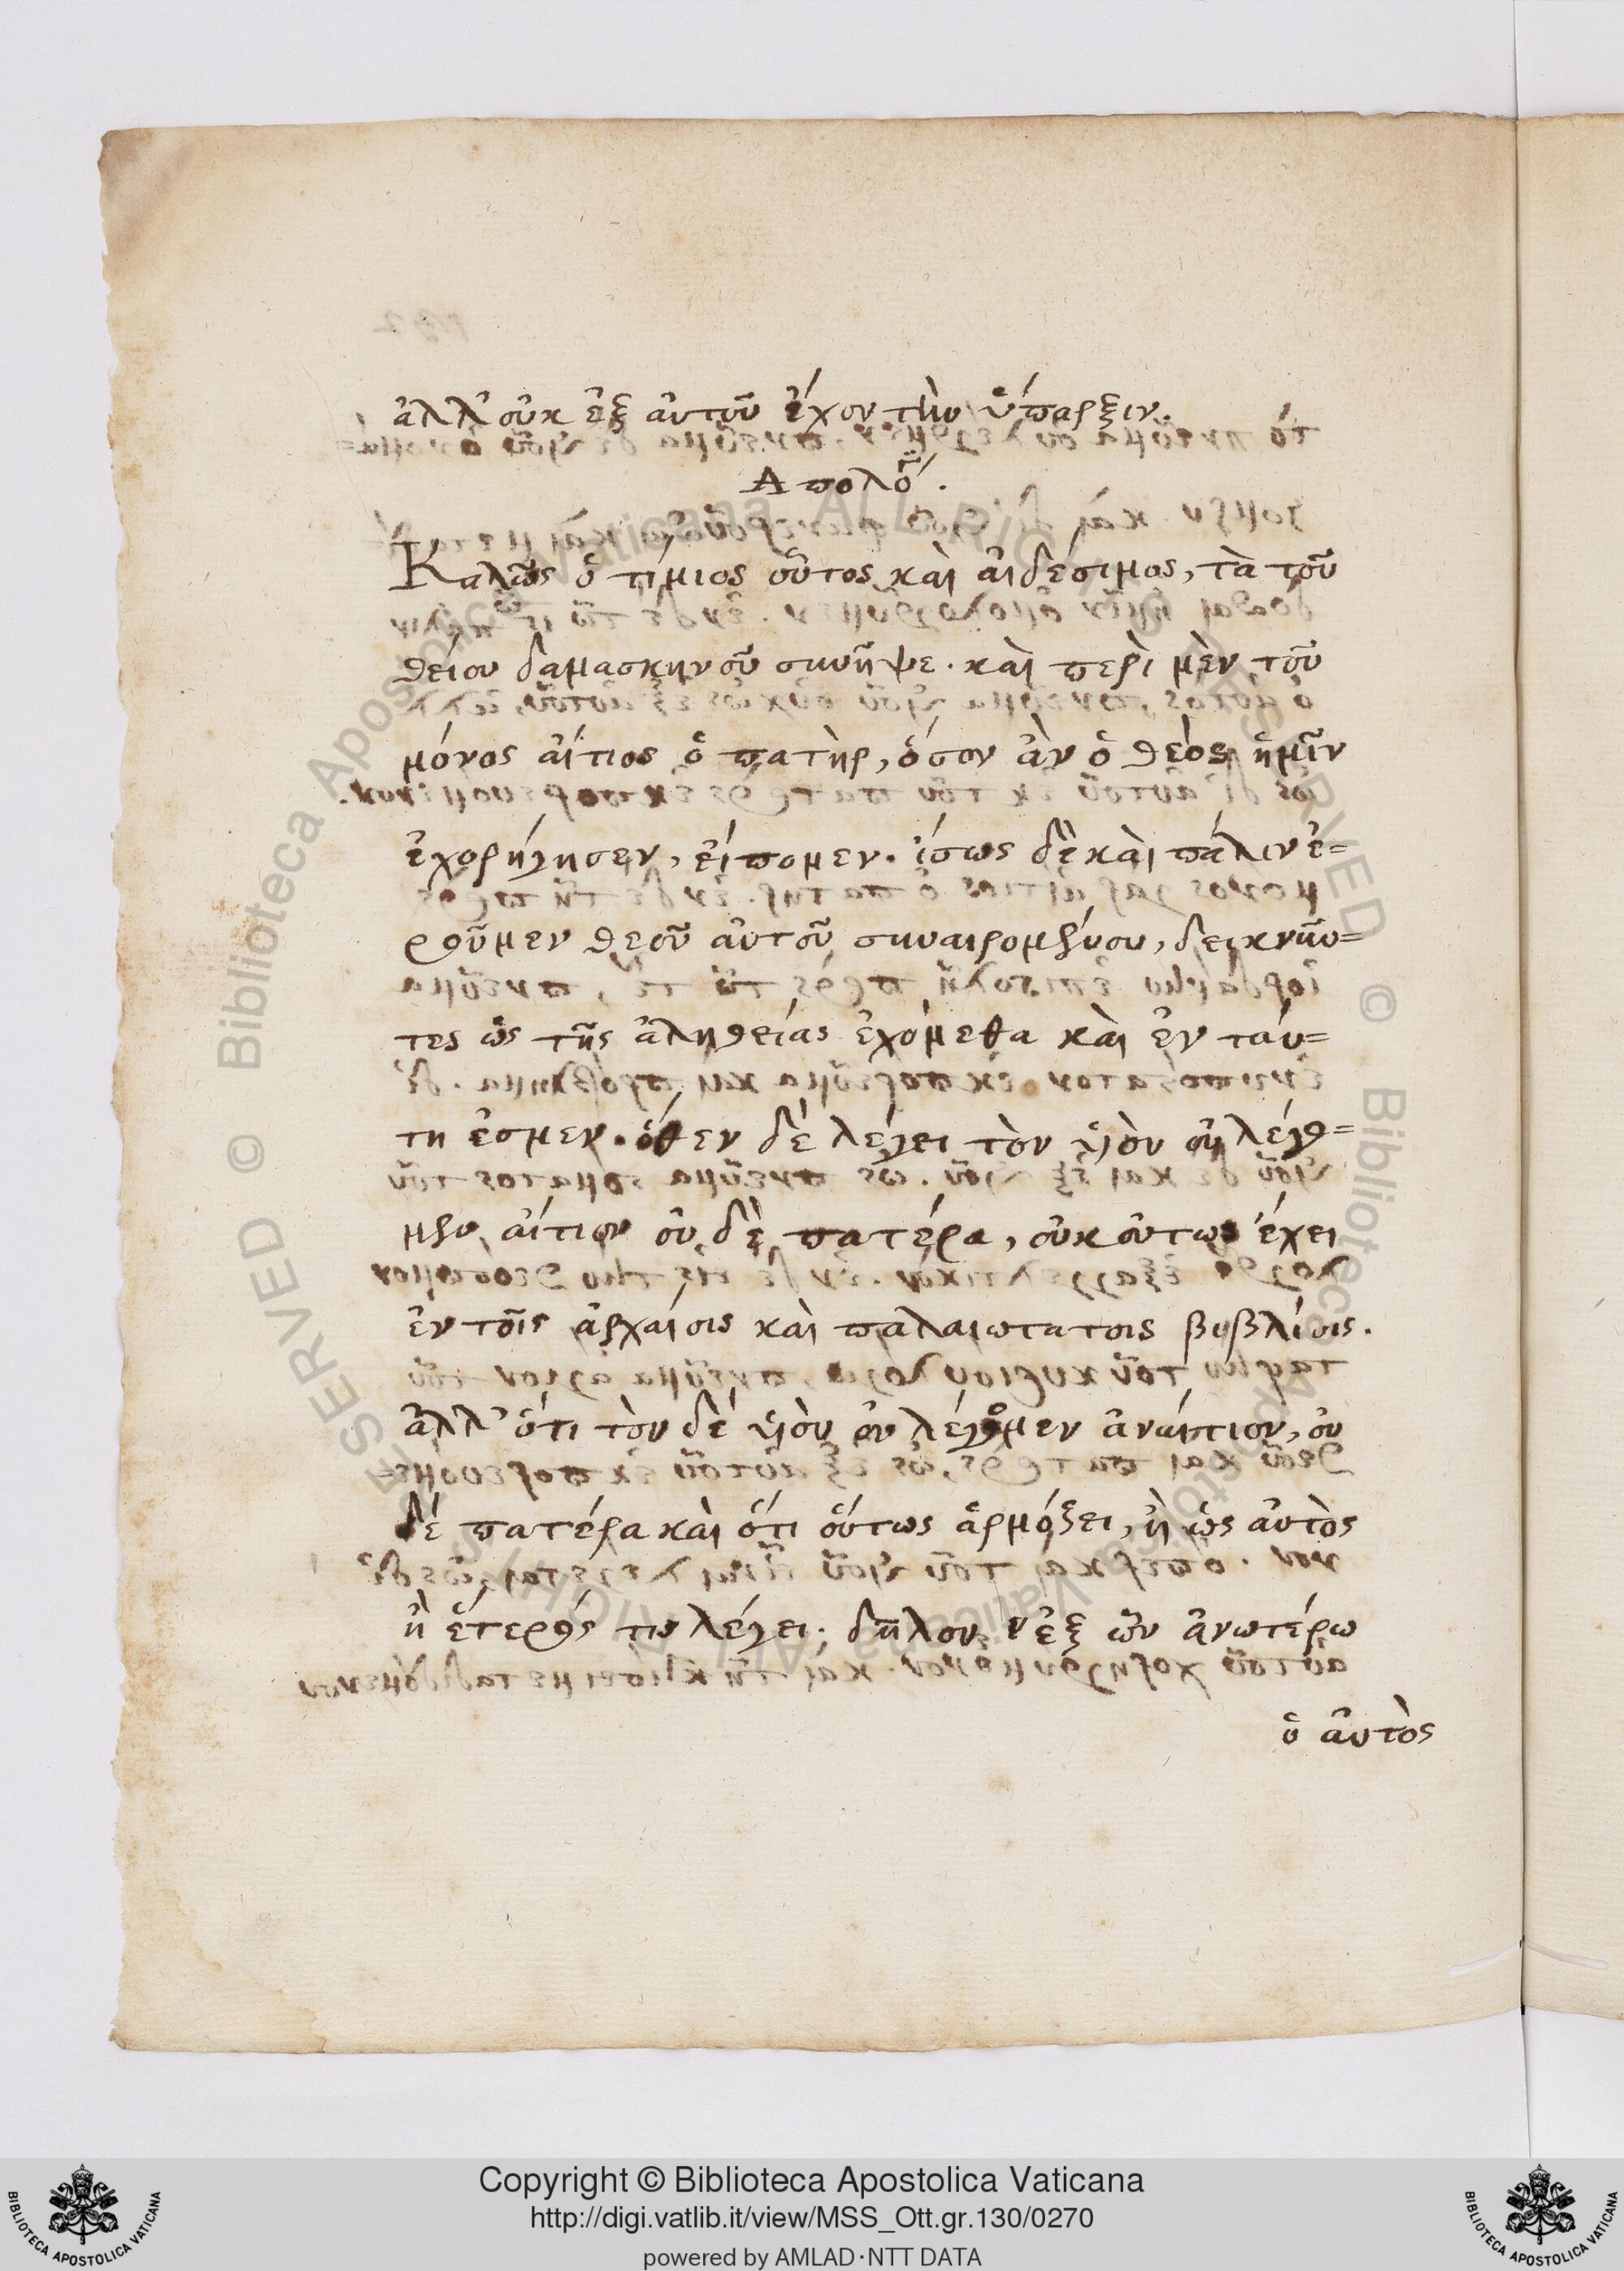 ἀλλ' οὐκ ἐξ αὐτοῦ ἔχον τὴν ὕπαρξιν.
Απολο.
Καλῶς ὁ τίμιος οὗτος καὶ αἰδέσιμος, τὰ τοῦ
θείου δαμασκηνοῦ συνῆψε. καὶ περὶ μὲν τοῦ
μόνος αἴτιος ὁ πατὴρ, ὅσον ἂν ὁ θεὸς ἡμῖν
ἐχορήγησεν, εἴπομεν. ἴσως δὲ καὶ πάλιν ἐ=
ροῦμεν θεοῦ αὐτοῦ συναιρομένου, δεικνῦν=
τες ὡς τῆς ἀληθείας ἐχόμεθα καὶ ἐν ταύ=
τη ἐσμεν. ὅθεν δὲ λέγει τὸν υἱὸν οὐ λέγο=
μεν αἴτιον οὐ δὲ πατέρα, οὐκ οὕτως ἔχει
ἐν τοῖς ἀρχαίοις καὶ παλαιωτατοις βιβλίοις.
ἀλλ' ὅτι τὸν δὲ υἱὸν οὐ λέγομεν ἀναίτιον, οὐ
δὲ πατέρα καὶ ὅτι οὕτως ἁρμόζει, ἢ ὡς αὐτὸς
ἢ ἕτερός τις λέγει. δῆλον ἐξ ὧν ἀνωτέρω
ὁ αὐτὸς
Copyright © Biblioteca Apostolica Vaticana
http://digi.vatlib.it/view/MSS_Ott.gr.130/0270
powered by AMLAD·NTT DATA
BIBLIOTECA APOSTOLICA VATICANA
BIBLIOTECA APOSTOLICA VATICANA